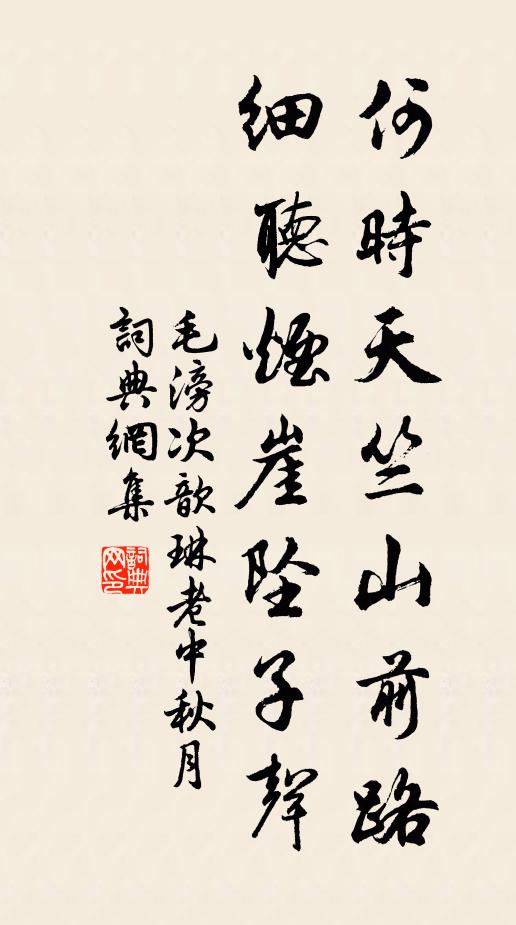 何時天竺山前路
細聽煙崖坠子聲
毛滂次歆琳老中秋月
詞典網集
詞典网印